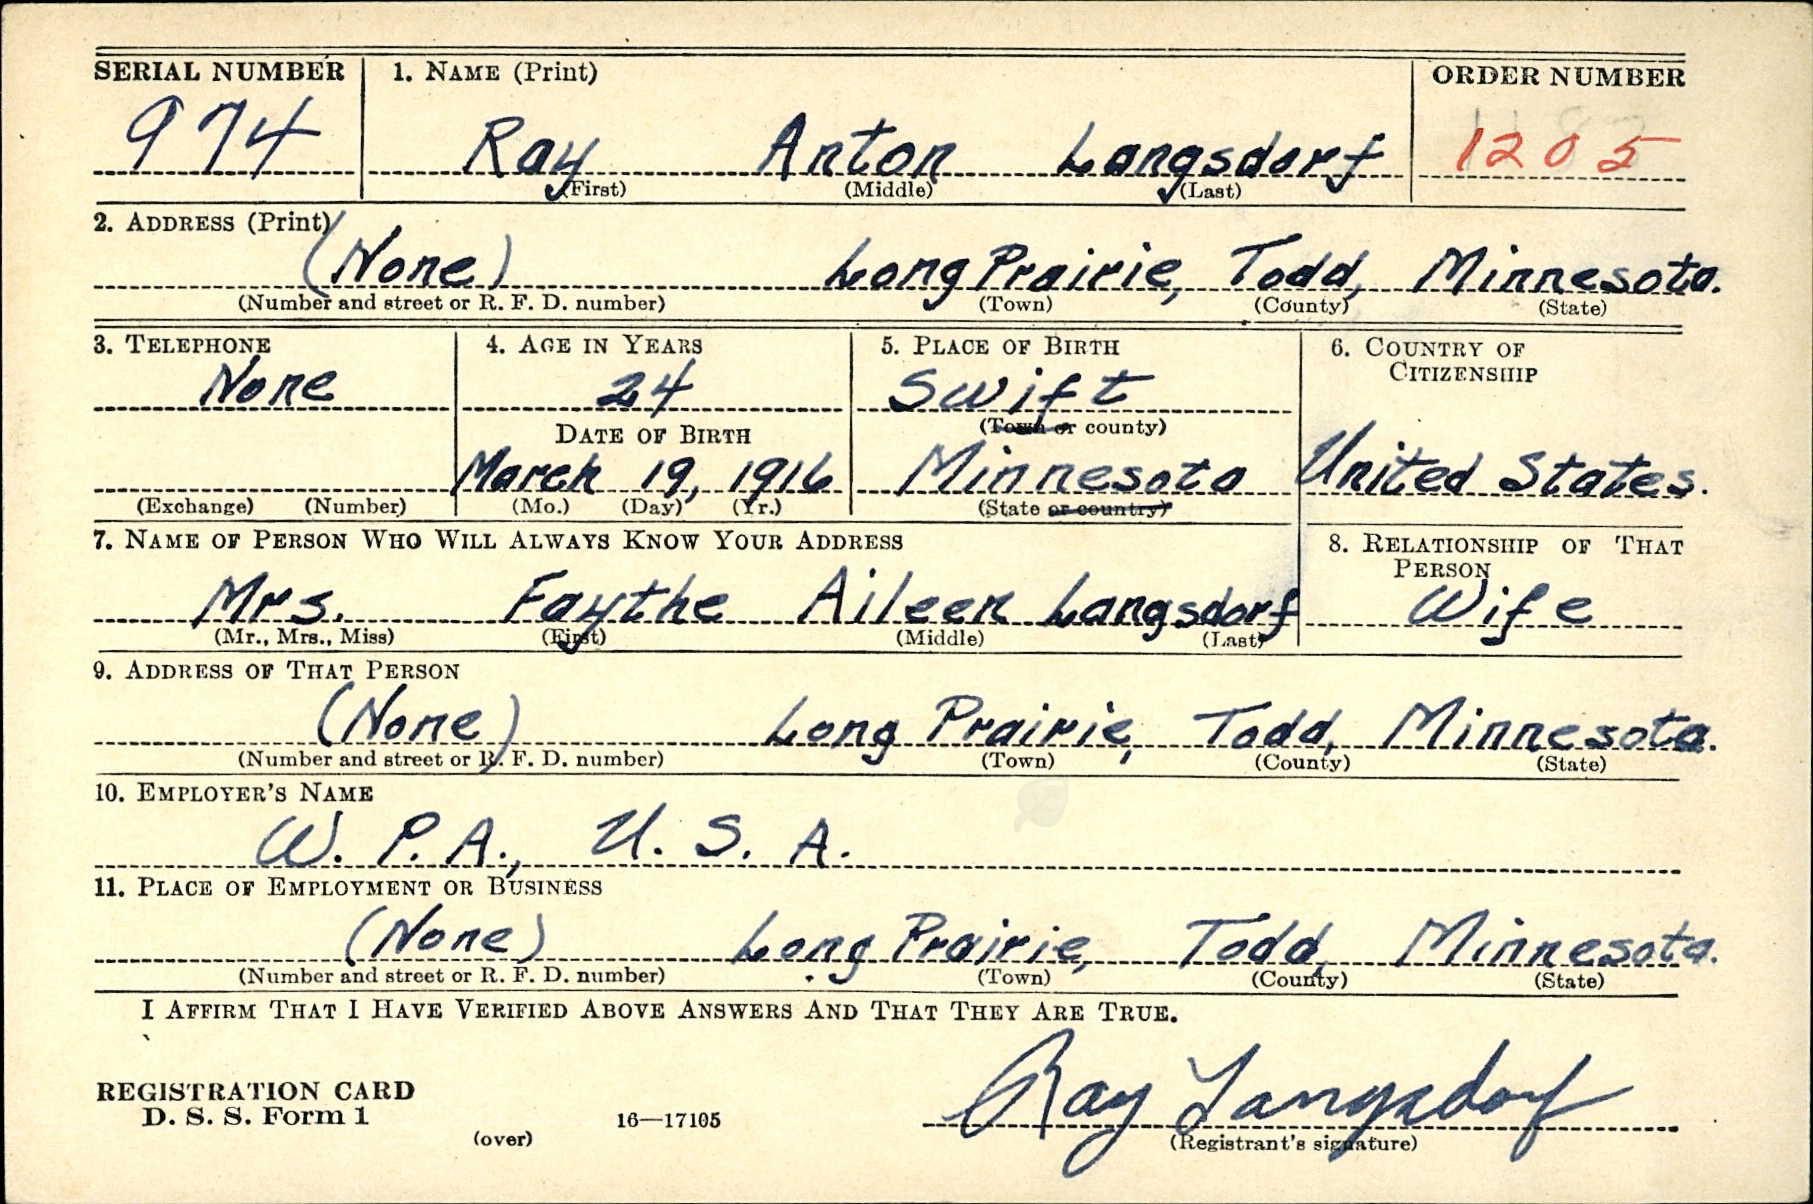 SERIAL NUMBER 1. NAME (Print) ORDER NUMBER
974 Ray Anton Langsdorf 1205
(First) (Middle) (Last)
2. ADDRESS (Print)
(None) Long Prairie, Todd, Minnesota.
(Number and street or R. F. D. number) (Town) (County) (State)
3. TELEPHONE 4. AGE IN YEARS 5. PLACE OF BIRTH 6. COUNTRY OF
CITIZENSHIP
None 24 Swift
(Town or county)
DATE OF BIRTH
March 19, 1916 Minnesota United States.
(Exchange) (Number) (Mo.) (Day) (Yr.) (State or country)
7. NAME OF PERSON WHO WILL ALWAYS KNOW YOUR ADDRESS 8. RELATIONSHIP OF THAT
PERSON
Mrs. Faythe Aileen Langsdorf Wife
(Mr., Mrs., Miss) (First) (Middle) (Last)
9. ADDRESS OF THAT PERSON
(None) Long Prairie, Todd, Minnesota.
(Number and street or R. F. D. number) (Town) (County) (State)
10. EMPLOYER'S NAME
W. P. A., U. S. A.
11. PLACE OF EMPLOYMENT OR BUSINESS
(None) Long Prairie, Todd, Minnesota.
(Number and street or R. F. D. number) (Town) (County) (State)
I AFFIRM THAT I HAVE VERIFIED ABOVE ANSWERS AND THAT THEY ARE TRUE.
REGISTRATION CARD
D. S. S. Form 1 16—17105 Ray Langsdorf
(over) (Registrant's signature)